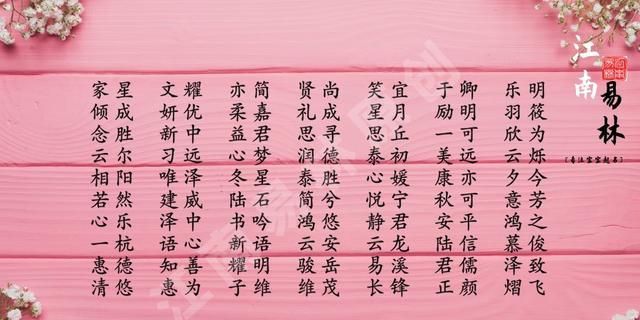 江南
易林
【专注宝宝起名】
明筱为烁今芳之俊致飞
乐羽欣云夕意鸿慕泽熠
卿明可远亦可平信儒颜
于励一美康秋安陆君正
宜月丘初媛宁君龙溪锋
笑星思泰心悦静云易长
尚成寻德胜兮悠安岳茂
贤礼思润泰简鸿云骏维
简嘉君梦星石吟语明维
亦柔益心冬陆书新耀子
耀优中远泽威中心善为
文妍新习唯建泽语知惠
星成胜尔阳然乐杭德悠
家倾念云相若心一惠清
江南易林原创